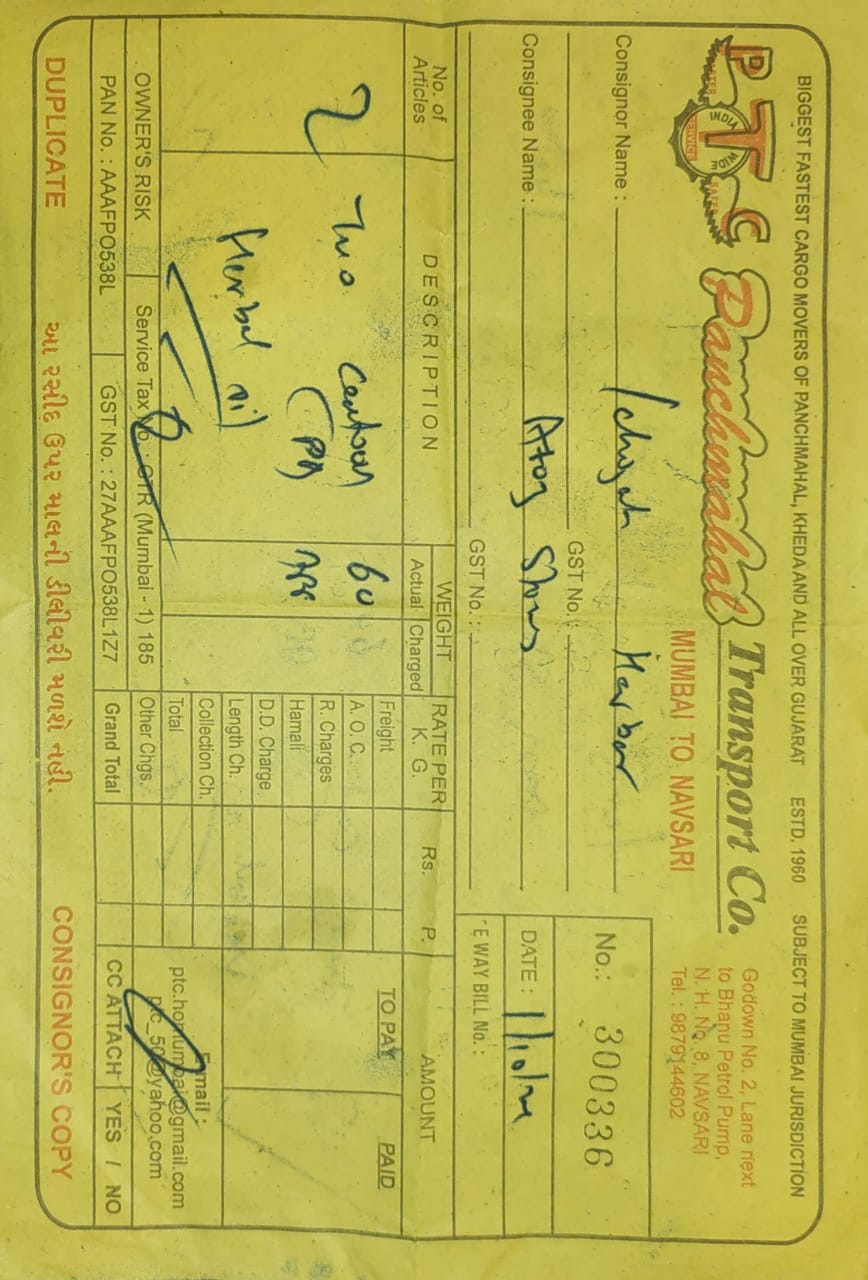 BIGGEST FASTEST CARGO MOVERS OF PANCHMAHAL, KHEDA AND ALL OVER GUJARAT ESTD. 1960 SUBJECT TO MUMBAI JURISDICTION
PTC
INDIA WIDE
SERVICE
SAFE
Panchmahal Transport Co.
MUMBAI TO NAVSARI
Godown No. 2, Lane next
to Bhanu Petrol Pump,
N. H. No. 8, NAVSARI
Tel. : 9879144602
Consignor Name :
GST No. :
No.: 300336
Consignee Name : Stores
GST No. :
DATE : 1/10/
E WAY BILL No. :
No. of Articles DESCRIPTION WEIGHT Actual Charged RATE PER K. G. Rs. P. AMOUNT
2 Two 60
Herbal oil
Freight TO PAY PAID
A. O. C.
R. Charges
Hamali
D.D. Charge
Length Ch.
Collection Ch.
Total
Other Chgs.
Grand Total
Email :
ptc.homumbai@gmail.com
ptc_50@yahoo.com
OWNER'S RISK Service Tax No. : GTR (Mumbai - 1) 185
PAN No. : AAAFPO538L GST No. : 27AAAFPO538L1Z7
CC ATTACH YES / NO
DUPLICATE આ રસીદ ઉપર માલની ડીલીવરી મળશે નહી. CONSIGNOR'S COPY